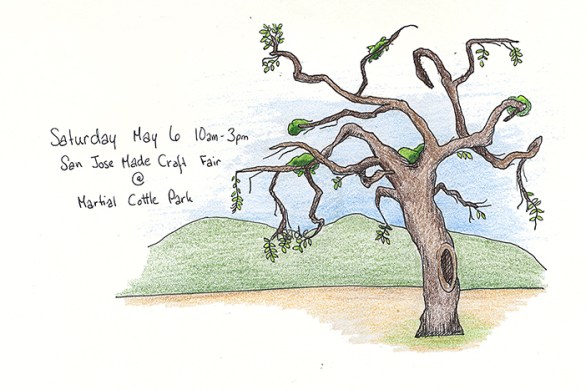 Saturday May 6 10am-3pm
San Jose Made Craft Fair
@
Martial Cottle Park